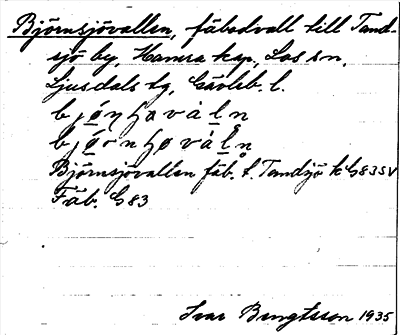 Björnsjövallen, fäbodvall till Tand-
sjö by, Hamra kap, Los sn,
Ljusdals tg, Gävleb. l.
Björnsjövallen fäb. t. Tandsjö k G83SV
Fäb. G83
Ivar Bengtsson 1935